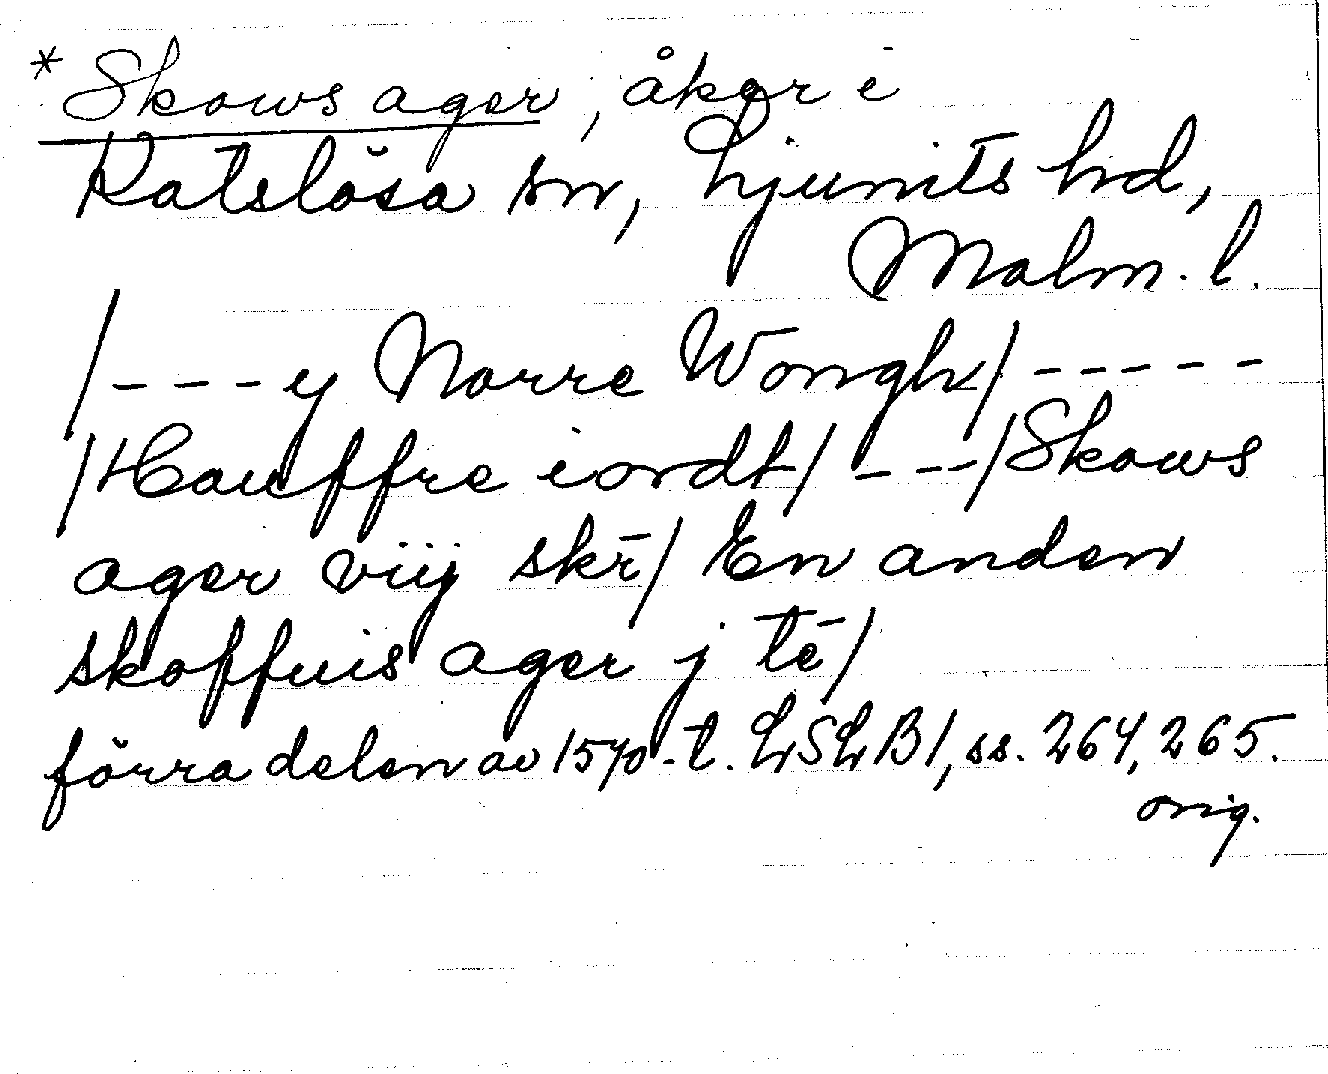 * Skows ager, åker i
Katslösa sn, Ljunits hd,
Malm. l.
/---y Norre Wongh/-----
/Hauffre iordt/ ---/Skows
ager viij skr̄/ En anden
skoffuis ager j tē/
förra delen av 1570-t. LSLB1, ss. 264, 265.
orig.